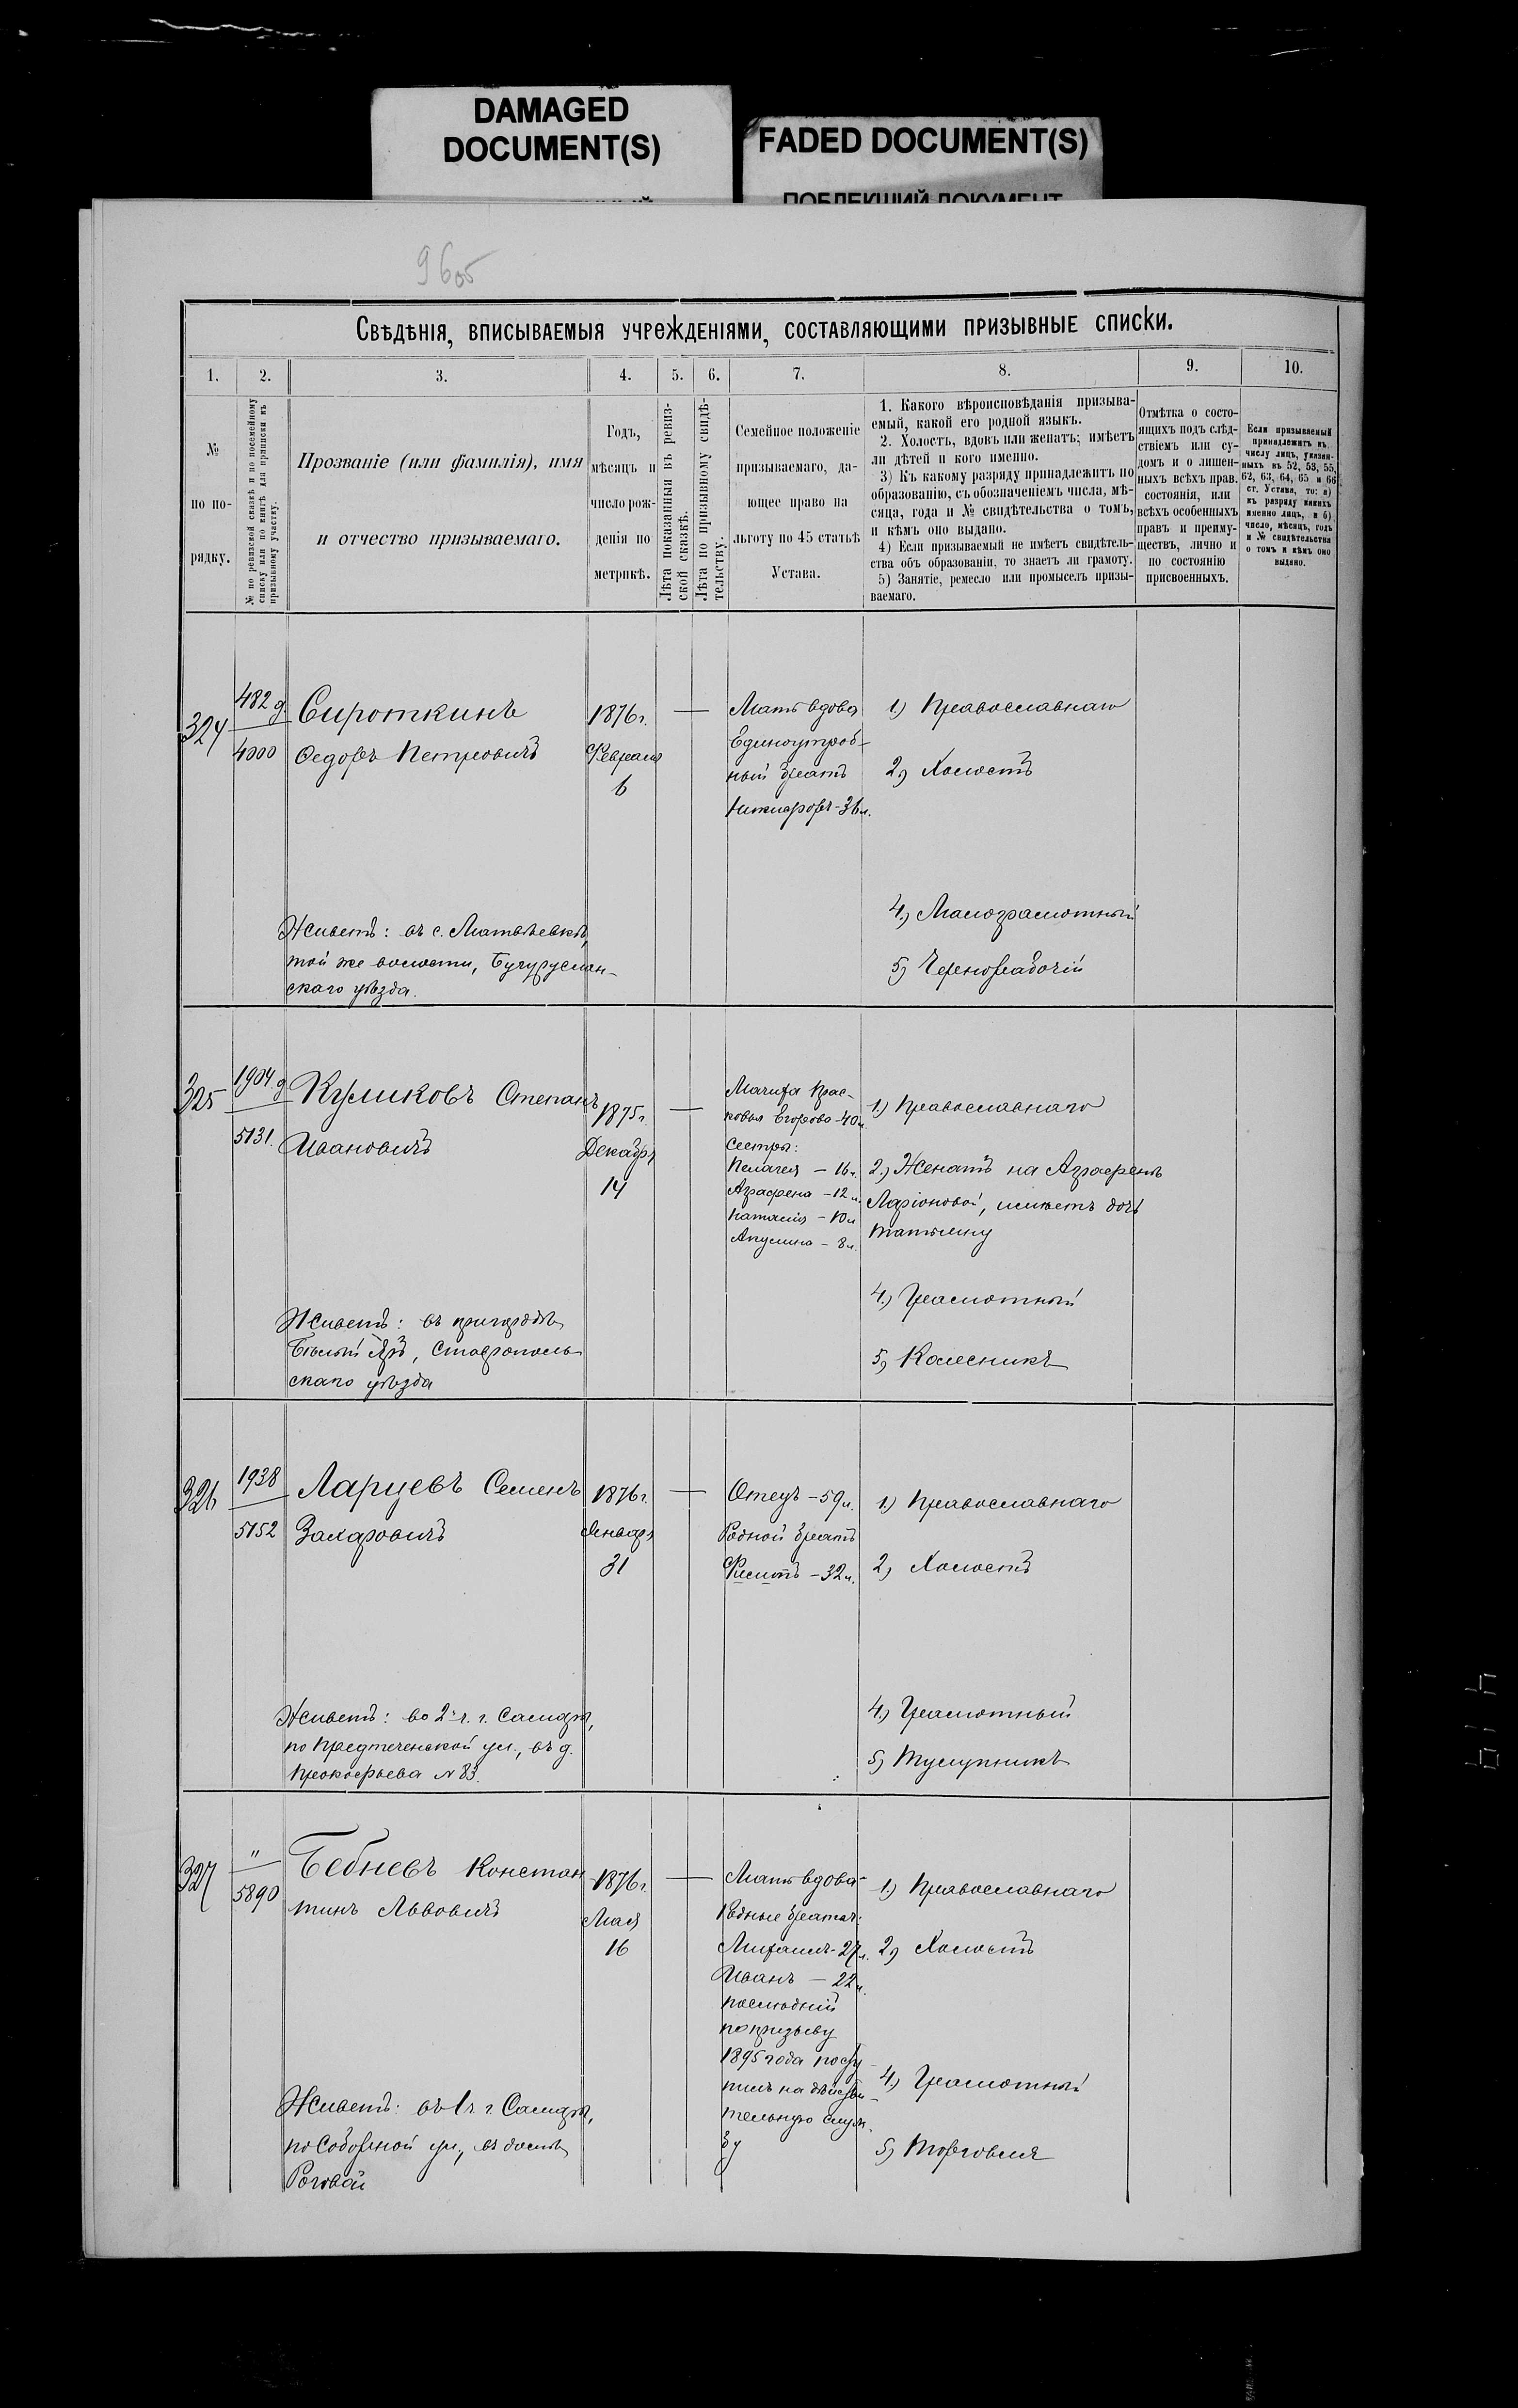 DAMAGED
DOCUMENT(S)
FADED DOCUMENT(S)
ПОБЛЕКШИЙ ДОКУМЕНТ
96об
Свѣдѣнія, вписываемыя учрежденіями, составляющими призывные списки.
1. 2. 3. 4. 5. 6. 7. 8. 9. 10.
№
по по-
рядку.
№ по ревизской сказкѣ и по посемейному
списку или по книгѣ для приписки къ
призывному участку.
Прозваніе (или фамилія), имя
и отчество призываемаго.
Годъ,
мѣсяцъ и
число рож-
денія по
метрикѣ.
Лѣта показанныя въ ревиз-
ской сказкѣ.
Лѣта по призывному свидѣ-
тельству.
Семейное положеніе
призываемаго, да-
ющее право на
льготу по 45 статьѣ
Устава.
1. Какого вѣроисповѣданія призыва-
емый, какой его родной языкъ.
2. Холостъ, вдовъ или женатъ; имѣетъ
ли дѣтей и кого именно.
3) Къ какому разряду принадлежитъ по
образованію, съ обозначеніемъ числа, мѣ-
сяца, года и № свидѣтельства о томъ,
и кѣмъ оно выдано.
4) Если призываемый не имѣетъ свидѣтель-
ства объ образованіи, то знаетъ ли грамоту.
5) Занятіе, ремесло или промыселъ призы-
ваемаго.
Отмѣтка о состо-
ящихъ подъ слѣд-
ствіемъ или су-
домъ и о лишен-
ныхъ всѣхъ прав.
состоянія, или
всѣхъ особенныхъ
правъ и преиму-
ществъ, лично и
по состоянію
присвоенныхъ.
Если призываемый
принадлежитъ къ
числу лицъ, указан-
ныхъ въ 52, 53, 55,
62, 63, 64, 65 и 66
ст. Устава, то: а)
къ разряду какихъ
именно лицъ, и б)
число, мѣсяцъ, годъ
и № свидѣтельства
о томъ и кѣмъ оно
выдано.
324
482 д.
4000
Сироткинъ
Федоръ Петровичъ
Живетъ: въ с. Матвѣевкѣ,
той же волости, Бугуруслан-
скаго уѣзда.
1876 г.
Февраля
6
—
Мать вдова
Единоутроб-
ный братъ
Никифоръ - 36 л.
1) Православнаго
2) Холостъ
4.) Малограмотный
5) Чернорабочій
325
1904. д
5131.
Куликовъ Степанъ
Ивановичъ
Живетъ: въ пригородѣ
Бѣлый Яръ, Ставрополь-
скаго уѣзда
1875 г.
Декабря
14
—
Мачиха Прас-
ковья Егорова - 40 л.
Сестры:
Пелагея — 16 л.
Аграфена — 12 л.
Наталія — 10 л
Акулина — 8 л.
1.) Православнаго
2.) Женатъ на Аграфенѣ
Ларіоновой, имѣетъ дочь
Татьяну
4.) Грамотный
5) Колесникъ
326
1938
5152
Ларцевъ Семенъ
Захаровичъ
Живетъ: во 2 ч. г. Самары,
по Предтеченской ул., въ д.
Прокофьева № 83.
1876 г.
Января
31
—
Отецъ — 59 л.
Родной братъ
Филиппъ — 32 л.
1.) Православнаго
2) Холостъ
4.) Грамотный
5) Тулупникъ
327
"
5890
Бебневъ Констан-
тинъ Львовичъ
Живетъ: въ 1 ч г. Самары,
по Соборной ул., въ домѣ
Роговой
1876 г.
Мая
16
—
Мать вдова
Родные братья:
Михаилъ - 27 л.
Иванъ — 22 л.
послѣдній
по призыву
1895 года посту-
пилъ на дѣйстви-
тельную служ-
бу
1.) Православнаго
2) Холостъ
4.) Грамотный
5) Торговля